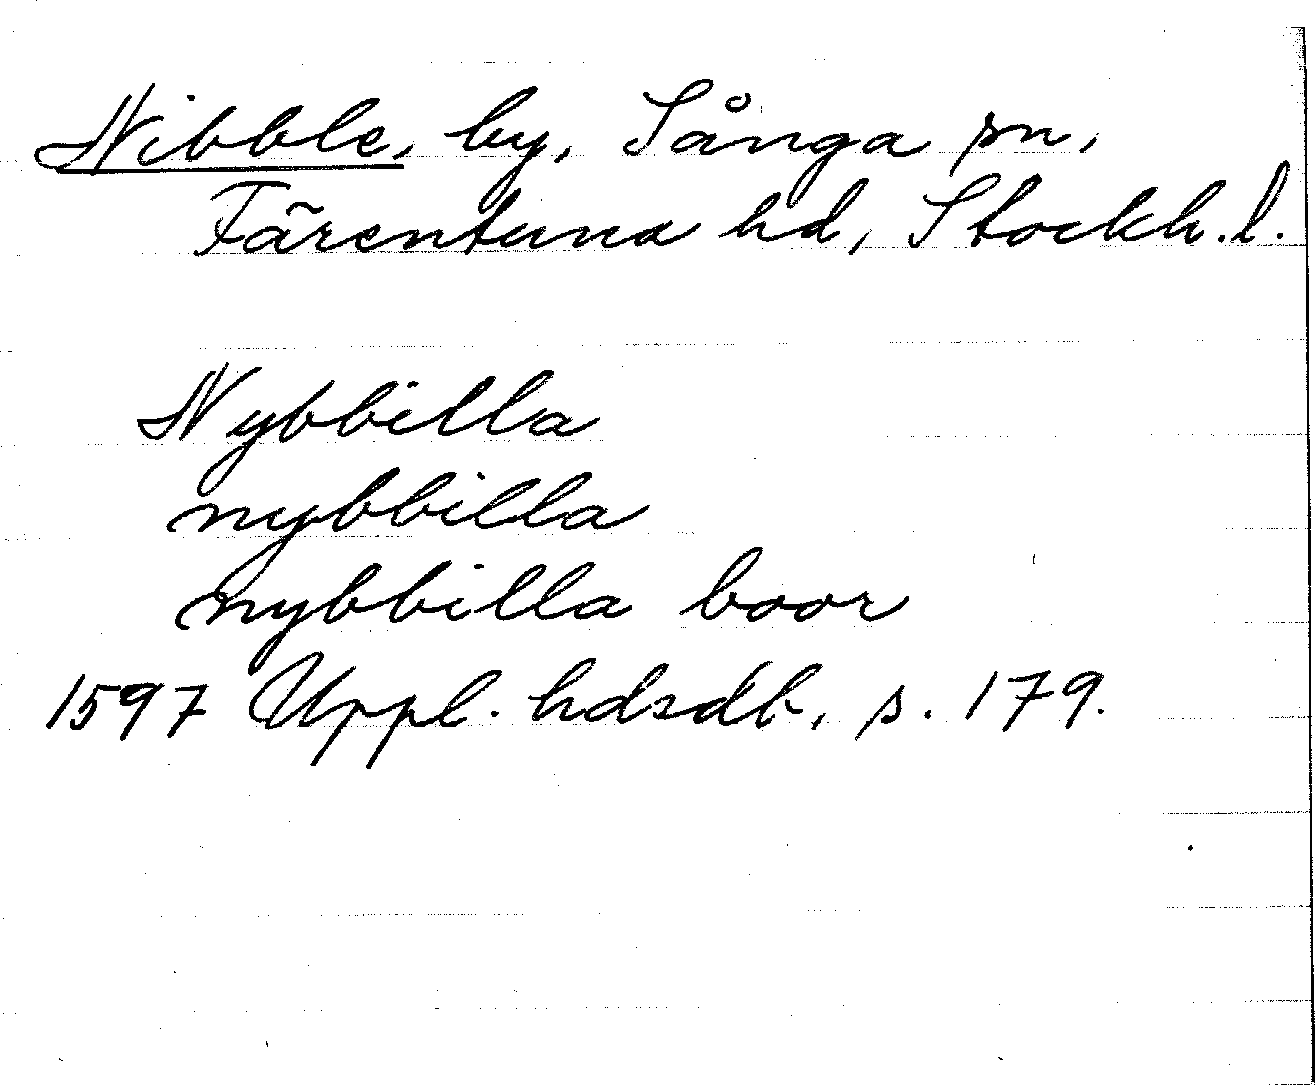 Nibble, by, Sånga sn,
Färentuna hd, Stockh. l.
Nybbilla
nybbilla
nybbilla boor
1597 Uppl. hdsdb, s. 179.